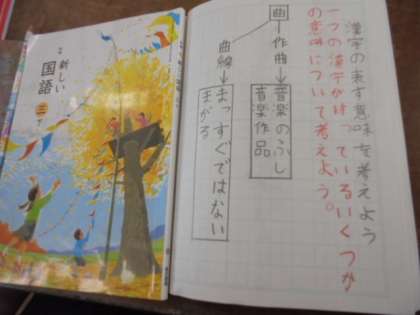 新編
新しい
国語
三
下
漢字の表す意味を考えよう
一つの漢字がもっているいくつか
の意味について考えよう。
曲
作曲→音楽のふし
音楽作品
曲線→まっすぐではない
まがる